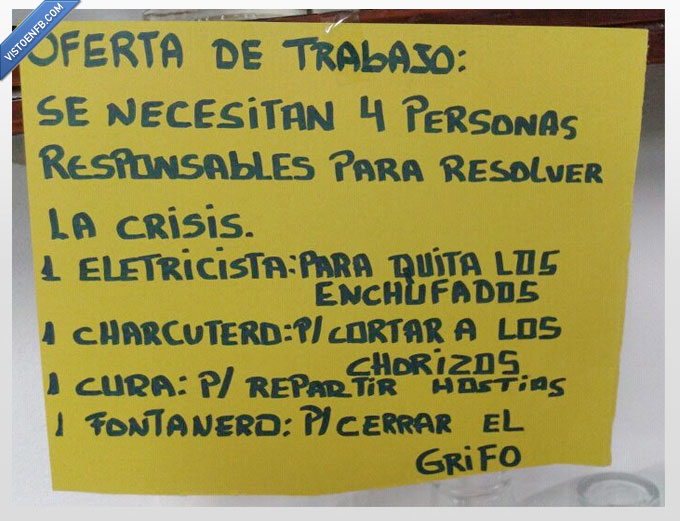 VISTOENFB.COM
OFERTA DE TRABAJO:
SE NECESITAN 4 PERSONAS
RESPONSABLES PARA RESOLVER
LA CRISIS.
1 ELETRICISTA: PARA QUITA LOS
ENCHUFADOS
1 CHARCUTERO: P/ CORTAR A LOS
CHORIZOS
1 CURA: P/ REPARTIR HOSTIAS
1 FONTANERO: P/ CERRAR EL
GRIFO